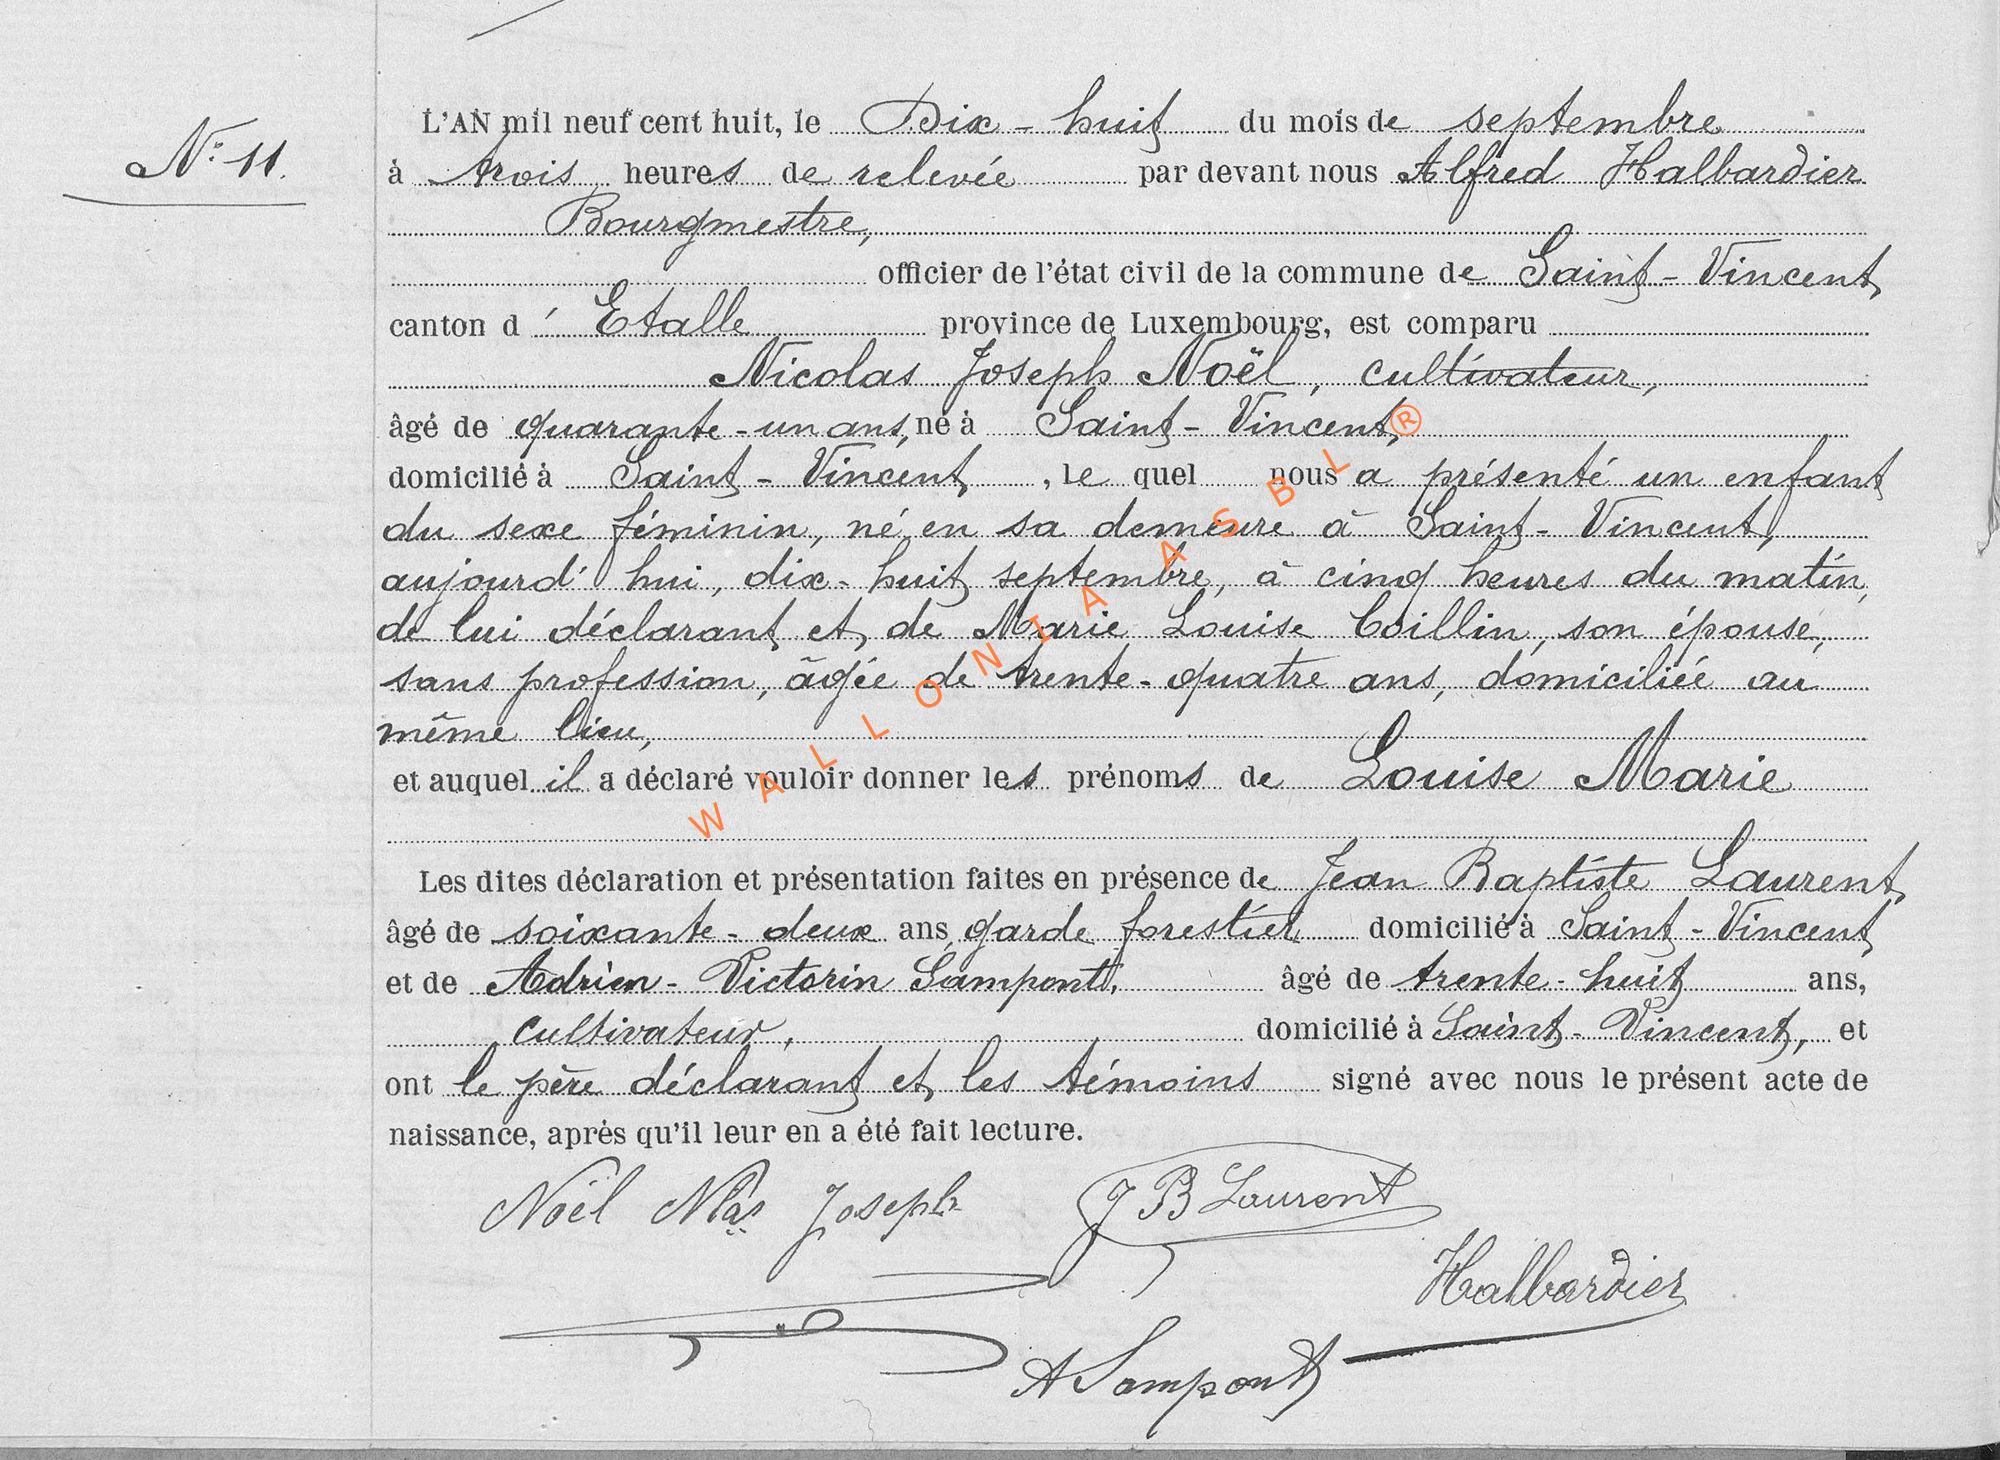 N° 11.
L'AN mil neuf cent huit, le Dix-huit du mois de septembre
à trois heures de relevée par devant nous Alfred Halbardier
Bourgmestre,
officier de l'état civil de la commune de Saint-Vincent,
canton d'Etalle province de Luxembourg, est comparu
Nicolas Joseph Noël, cultivateur,
âgé de quarante-un ans, né à Saint-Vincent,
domicilié à Saint-Vincent, le quel nous a présenté un enfant
du sexe féminin, né en sa demeure à Saint-Vincent,
aujourd'hui, dix-huit septembre, à cinq heures du matin,
de lui déclarant et de Marie Louise Coillin, son épouse,
sans profession, âgée de trente-quatre ans, domiciliée au
même lieu,
et auquel il a déclaré vouloir donner les prénoms de Louise Marie
Les dites déclaration et présentation faites en présence de Jean Baptiste Laurent,
âgé de soixante-deux ans, garde forestier domicilié à Saint-Vincent
et de Adrien-Victorin Sampont, âgé de trente-huit ans,
cultivateur, domicilié à Saint-Vincent, et
ont le père déclarant et les témoins signé avec nous le présent acte de
naissance, après qu'il leur en a été fait lecture.
Noël Nlas Joseph J B Laurent
Halbardier
A Sampont
WALLONIA ASBL®